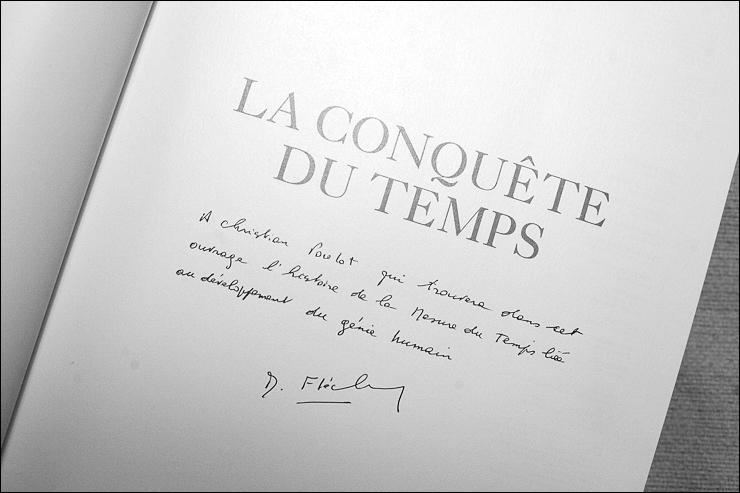 LA CONQUÊTE
DU TEMPS
A Christian Poulot qui trouvera dans cet
ouvrage l'histoire de la Mesure du Temps liée
au développement du génie humain
D. Fléchon